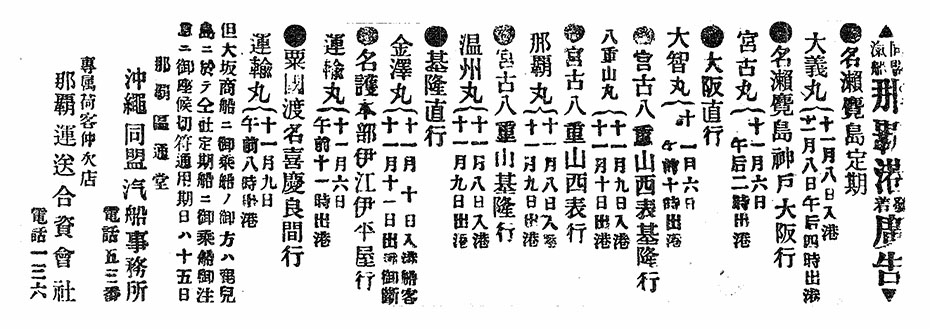 ▲同盟汽船那覇港發着廣告▼
●名瀨麑島定期
大義丸(十一月八日入港
十一月八日午后四時出港
●名瀨麑島神戸大阪行
宮古丸(十一月六日
午后二時出港
●大阪直行
大智丸(十一月六日
午前十時出港
●宮古八重山西表基隆行
八重山丸(十一月九日入港
十一月十日出港
●宮古八重山西表行
那覇丸(十一月八日入港
十一月九日出港
●宮古八重山基隆行
温州丸(十一月八日入港
十一月九日出港
●基隆直行
金澤丸(十一月十日入港船客
十一月十一日出港御斷
●名護本部伊江伊平屋行
運輸丸(十一月六日
午前十一時出港
●粟國渡名喜慶良間行
運輸丸(十一月九日
午前八時出港
但大坂商船ニ御乘船ノ御方ハ麑兒
島ニ於テ仝社定期船ニ御乘船御注
意ニ御座候切符通用期日ハ十五日
那覇區通堂
沖繩同盟汽船事務所
電話五三番
專属荷客仲次店
那覇運送合資會社
電話一三六